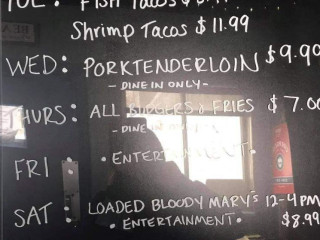 TUE: Fish Tacos $
Shrimp Tacos $11.99
WED: PORKTENDERLOIN $9.90
- DINE IN ONLY -
THURS: ALL BURGERS & FRIES $7.00
- DINE IN ONLY -
FRI : • ENTERTAINMENT •
SAT : LOADED BLOODY MARY'S 12-4PM
• ENTERTAINMENT • $8.99